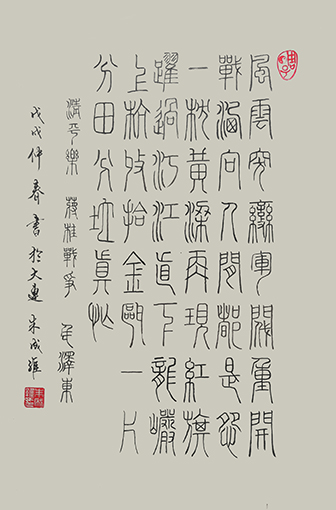 風雲突變軍閥重開
戰洒向人間都是怨
一枕黃粱再現紅旗
躍過汀江直下龍巖
上杭收拾金甌一片
分田分地真忙
清平樂 蔣桂戰爭 毛澤東
戊戌仲春書於大連